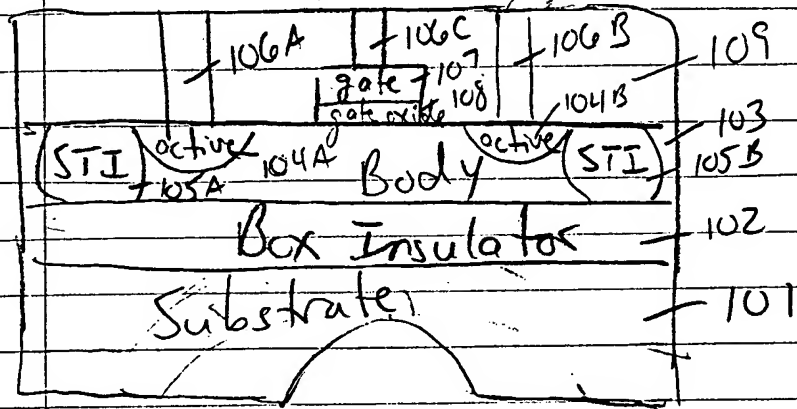 106A 106C 106B 109
gate 107
gate oxide 108 104B 103
STI active 104A active STI
105A Body 105B
Box Insulator 102
Substrate 101